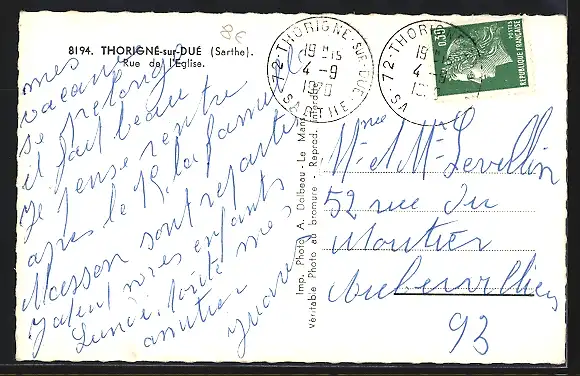 8€
8194. THORIGNÉ-sur-DUÉ (Sarthe).
Rue de l'Eglise.
mes
vacances
se prolonge
il fait beau
Je pense rentre
apres le 15. la famille
Masson sont repartie
nos enfants
Lundi. toute mes
amitier
Yvonne
Imp. Photo A. Dolbeau - Le Mans
Véritable Photo au bromure - Reprod. interdite
72-THORIGNÉ-SUR-DUÉ
19 H15
4-9
1970
SARTHE
72-THORIGNÉ
19 H
4-9
SA
0,30
POSTES
REPUBLIQUE FRANÇAISE
Mme et Mr Levellin
52 rue du
Moutier
Aubervilliers
93